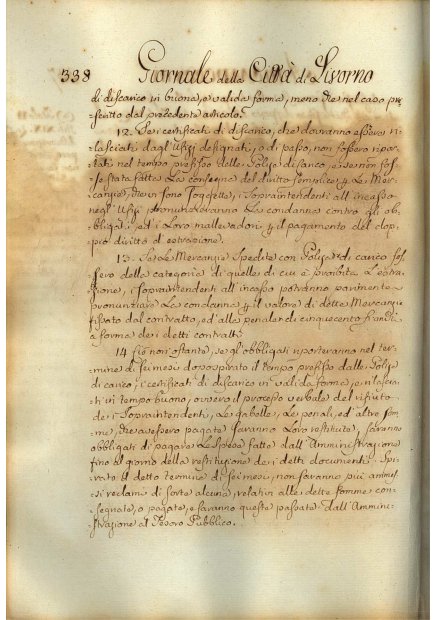 338 Giornale della Città di Livorno
di discarico in buona, e valida forma, meno che nel caso pre-
scritto dal precedente articolo.
12. Se i certificati di discarico, che dovranno essere ri-
lasciati dagl'Ufizj designati, o di passo, non fossero ripor-
tati nel tempo prefisso delle Polize di carico, e se non fos-
se stata fatta la consegna del diritto semplice p le Mer-
canzie, che vi sono soggette, i Sopraintendenti all'incasso
negl'Ufizj pronunzieranno la condanna contro gli ob-
bligati, ed i loro mallevadori p il pagamento del dop-
pio diritto d'estrazione.
13. Se le Mercanzie spedite con Poliza di carico fos-
sero della categoria di quelle di cui è proibita l'estra-
zione, i Sopraintendenti all'incasso potranno parimente
pronunziare la condanna p il valore di dette Mercanzie
fissato dal contratto, ed alla penale di cinquecento franchi
a forma dei detti contratti.
14. Ciò non ostante, se gli obbligati riporteranno nel ter-
mine di sei mesi dopo spirato il tempo prefisso dalle Polize
di carico, i certificati di discarico in valida forma, e rilascia-
ti in tempo buono, ovvero il processo verbale del rifiuto
dei Sopraintendenti, le gabelle, le penali, ed altre som-
me, che avessero pagate saranno loro restituite, saranno
obbligati di pagare le spese fatte dall'Amministrazione
fino al giorno della restituzione dei detti documenti. Spi-
rato il detto termine di sei mesi, non saranno più ammes-
si reclami di sorte alcuna, relativi alle dette somme con-
segnate, o pagate, e saranno queste passate dall'Ammini-
strazione al Tesoro Pubblico.